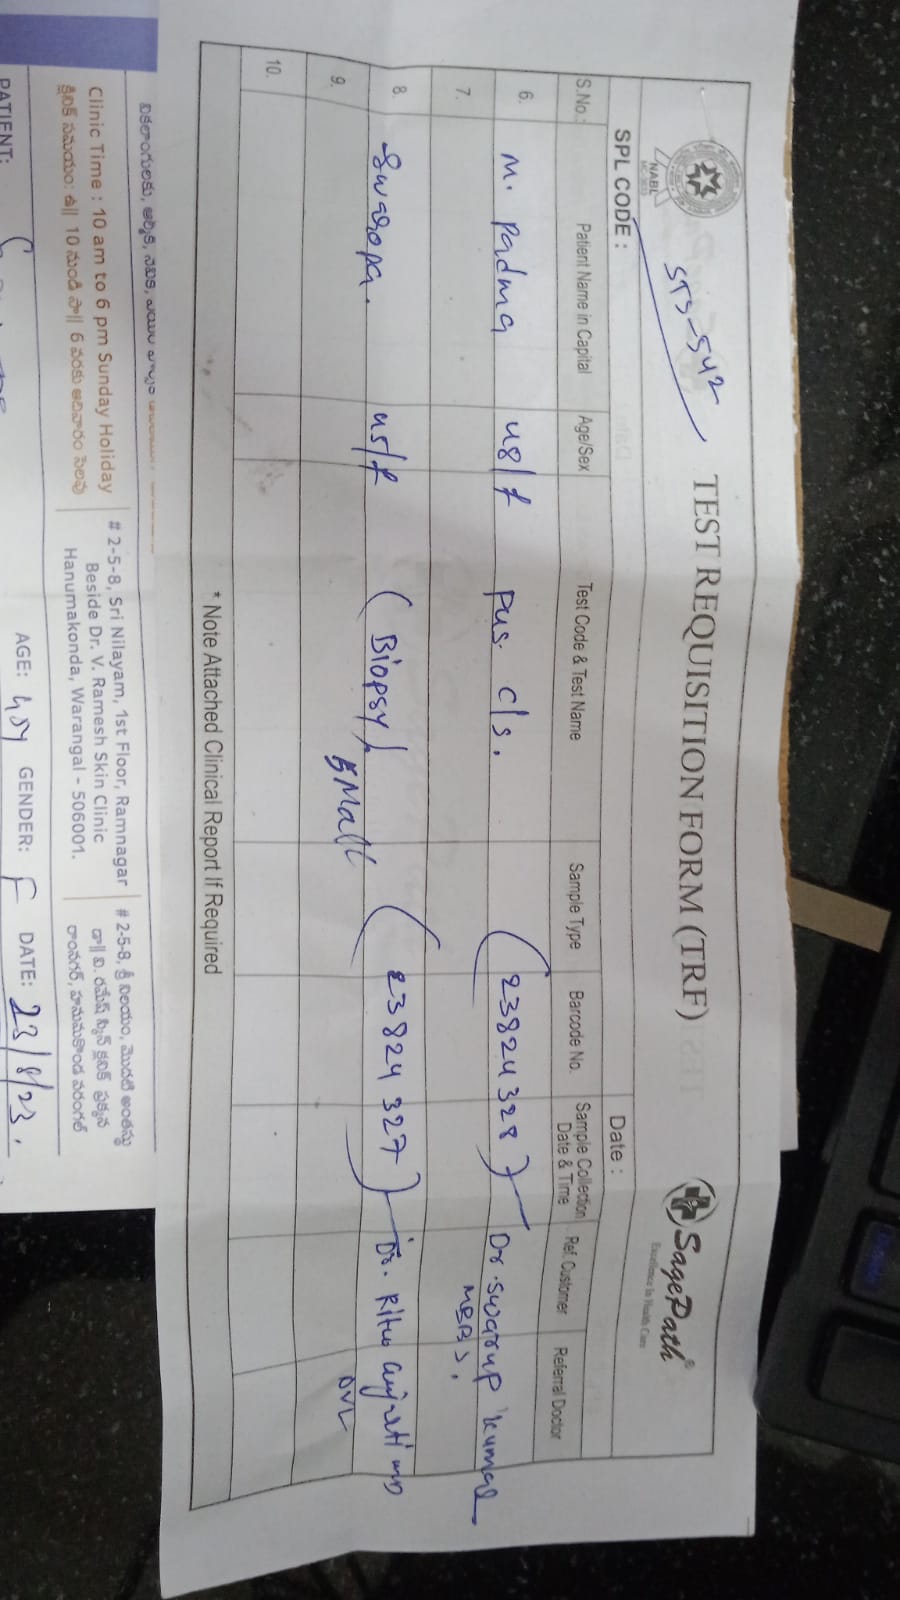 STS-542
TEST REQUISITION FORM (TRF)
SagePath®
Excellence In Health Care
NABL
SPL CODE :
Date :
S.No. Patient Name in Capital Age/Sex Test Code & Test Name Sample Type Barcode No. Sample Collection Date & Time Ref. Customer Referral Doctor
6. M. Padma 48/f Pus. c/s. (23824328) Dr. Swarup Kumar
MBBS,
7.
8. Swaropa. 45/f (Biopsy) (23824327) Dr. Ritu MD
Small DVL
9.
10.
* Note Attached Clinical Report If Required
Clinic Time : 10 am to 6 pm Sunday Holiday
# 2-5-8, Sri Nilayam, 1st Floor, Ramnagar
Beside Dr. V. Ramesh Skin Clinic
Hanumakonda, Warangal - 506001.
# 2-5-8, శ్రీ నిలయం, మొదటి అంతస్తు
డా|| వి. రమేష్ స్కిన్ క్లినిక్ ప్రక్కన
రాంనగర్, హనుమకొండ వరంగల్
క్లినిక్ సమయం: ఉ|| 10 నుండి సా|| 6 వరకు ఆదివారం సెలవు
PATIENT:
AGE: 45y GENDER: F DATE: 23/8/23.